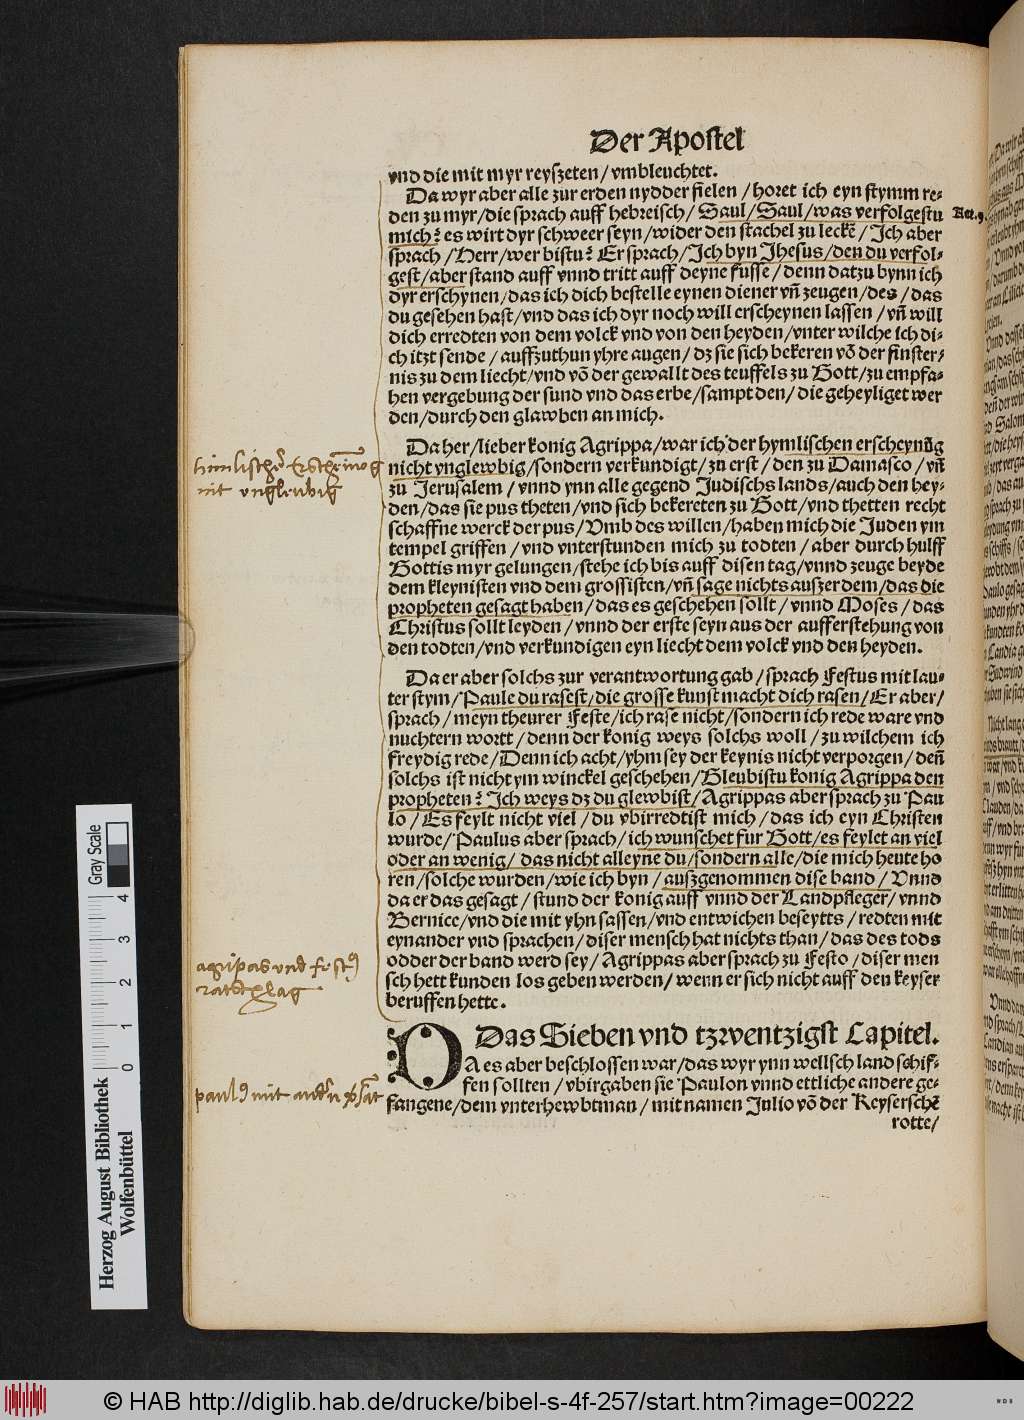 Der Apostel
vnd die mit myr reyszeten/ vmbleuchtet.
Da wyr aber alle zur erden nydder fielen / horet ich eyn stymm re-
den zu myr/die sprach auff hebreisch/ Saul/Saul/was verfolgestu
Act.9.
mich? es wirt dyr schweer seyn/wider den stachel zu leckē/ Ich aber
sprach /Herr/wer bistu? Er sprach/Ich byn Jhesus/den du verfol-
gest/aber stand auff vnnd tritt auff deyne fusse/ denn datzu bynn ich
dyr erschynen/das ich dich bestelle eynen diener vn̄ zeugen/des /das
du gesehen hast/vnd das ich dyr noch will erscheynen lassen / vn̄ will
dich erredten von dem volck vnd von den heyden/vnter wilche ich di-
ch itzt sende / auffzuthun yhre augen/dz sie sich bekeren vō der finster-
nis zu dem liecht/vnd vō der gewallt des teuffels zu Gott/zu empfa-
hen vergebung der sund vnd das erbe/sampt den/die geheyliget wer
den/durch den glawben an mich.
Da her/lieber konig Agrippa/war ich der hymlischen erscheynūg
nicht vnglewbig/sondern verkundigt/zu erst/den zu Damasco/vn̄
zu Jerusalem / vnnd ynn alle gegend Judischs lands/auch den hey-
den/das sie pus theten/vnd sich bekereten zu Gott/vnd thetten recht
schaffne werck der pus/Vmb des willen/haben mich die Juden ym
tempel griffen / vnd vnterstunden mich zu todten / aber durch hulff
Gottis myr gelungen/stehe ich bis auff disen tag/vnnd zeuge beyde
dem kleynisten vnd dem grossisten/vn̄ sage nichts auszer dem/das die
propheten gesagt haben/das es geschehen sollt / vnnd Moses / das
Christus sollt leyden / vnnd der erste seyn aus der aufferstehung von
den todten/vnd verkundigen eyn liecht dem volck vnd den heyden.
Da er aber solchs zur verantworttung gab /sprach Festus mit lau-
ter stym/Paule du rasest/die grosse kunst macht dich rasen/Er aber/
sprach / meyn theurer Feste/ich rase nicht/sondern ich rede ware vnd
nuchtern wortt / denn der konig weys solchs woll / zu wilchem ich
freydig rede/Denn ich acht/yhm sey der keynis nicht verporgen/den̄
solchs ist nicht ym winckel geschehen/Gleubistu konig Agrippa den
propheten? Ich weys dz du glewbist/Agrippas aber sprach zu Pau
lo/ Es feylt nicht viel /du vbirredtist mich /das ich eyn Christen
wurde/Paulus aber sprach/ich wunschet fur Gott/es feylet an viel
oder an wenig/ das nicht alleyne du/sondern alle/die mich heute ho
ren/solche wurden/wie ich byn/auszgenommen dise band/ Vnnd
da er das gesagt / stund der konig auff vnnd der Landpfleger/vnnd
Bernice/vnd die mit yhn sassen/vnd entwichen beseytts/redten mit
eynander vnd sprachen/diser mensch hat nichts than/das des tods
odder der band werd sey/Agrippas aber sprach zu Festo/diser men
sch hett kunden los geben werden/wenn er sich nicht auff den keyser
beruffen hette.
himlischer Erscheinung
nit vngleubig
agripas vnd festus
ratschlag
Das Sieben vnd tzwentzigst Capitel.
DA es aber beschlossen war/das wyr ynn wellsch land schif-
fen sollten / vbirgaben sie Paulon vnnd ettliche andere ge-
fangene/dem vnterhewbtman/mit namen Julio vō der Keyserschē
rotte/
Gray Scale
0 1 2 3 4
Herzog August Bibliothek
Wolfenbüttel
© HAB http://diglib.hab.de/drucke/bibel-s-4f-257/start.htm?image=00222